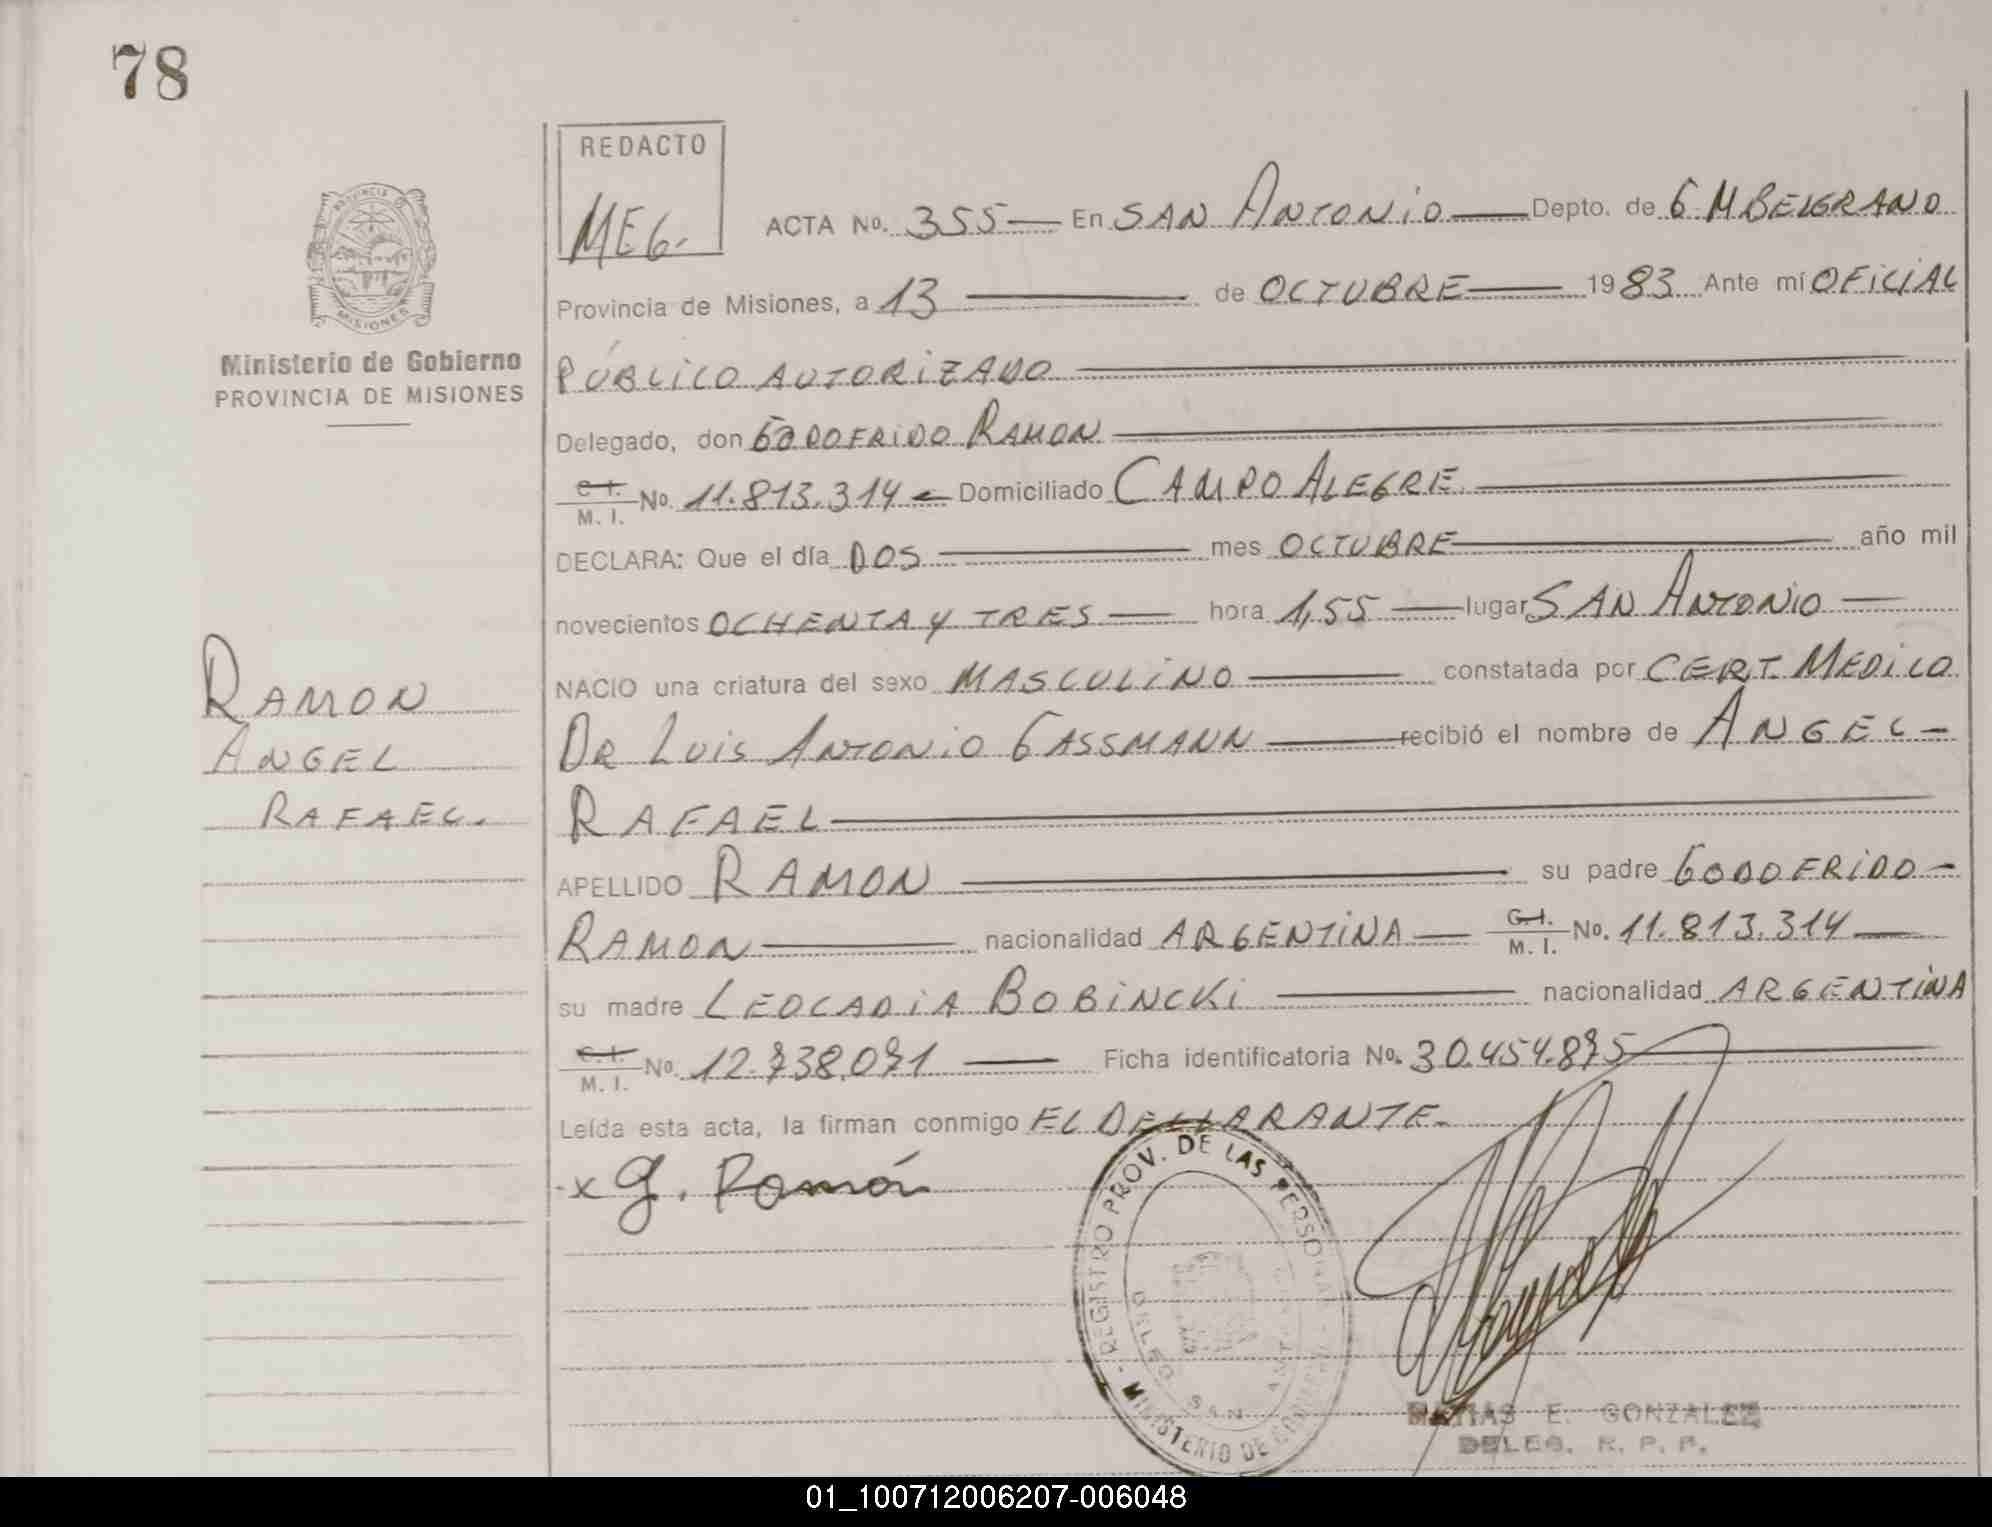 78
REDACTO
MEG.
PROVINCIA
MISIONES
Ministerio de Gobierno
PROVINCIA DE MISIONES
ACTA No. 355 En SAN ANTONIO Depto. de G M BELGRANO
Provincia de Misiones, a 13 de OCTUBRE 1983 Ante mí OFICIAL
PÚBLICO AUTORIZADO
Delegado, don GODOFRIDO RAMON
C. I. M. I. No. 11.813.314 Domiciliado CAMPO ALEGRE
DECLARA: Que el día DOS mes OCTUBRE año mil
novecientos OCHENTA Y TRES hora 1,55 lugar SAN ANTONIO
NACIO una criatura del sexo MASCULINO constatada por CERT. MEDICO
DR LUIS ANTONIO GASSMANN recibió el nombre de ANGEL-
RAFAEL
APELLIDO RAMON su padre GODOFRIDO-
RAMON nacionalidad ARGENTINA C. I. M. I. No. 11.813.314
su madre LEOCADIA BOBINCKI nacionalidad ARGENTINA
C. I. M. I. No. 12.738.071 Ficha identificatoria No. 30.454.875
Leída esta acta, la firman conmigo EL DECLARANTE.
x G. Ramón
RAMON
ANGEL
RAFAEL.
REGISTRO PROV. DE LAS PERSONAS
DELEG. SAN ANT
MINISTERIO DE GOBIERNO
MATIAS E. GONZALEZ
DELEG. R. P. P.
01_100712006207-006048